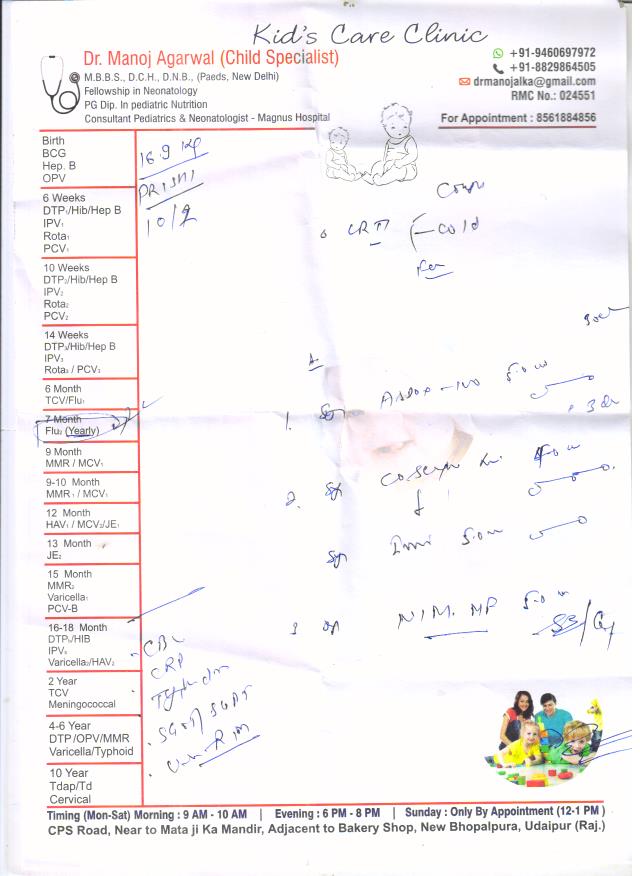 Kid's Care Clinic
Dr. Manoj Agarwal (Child Specialist)
M.B.B.S., D.C.H., D.N.B., (Paeds, New Delhi)
Fellowship in Neonatology
PG Dip. In pediatric Nutrition
Consultant Pediatrics & Neonatologist - Magnus Hospital
+91-9460697972
+91-8829864505
drmanojalka@gmail.com
RMC No.: 024551
For Appointment : 8561884856
Birth
BCG
Hep. B
OPV
16.9 kg
PRISHI
10/2
6 Weeks
DTP₁/Hib/Hep B
IPV₁
Rota₁
PCV₁
cold
10 Weeks
DTP₂/Hib/Hep B
IPV₂
Rota₂
PCV₂
14 Weeks
DTP₃/Hib/Hep B
IPV₃
Rota₃ / PCV₃
6 Month
TCV/Flu₁
7 Month
Flu₂ (Yearly)
1. Syp
9 Month
MMR / MCV₁
9-10 Month
MMR₁ / MCV₁
2. Syp
12 Month
HAV₁ / MCV₂/JE₁
13 Month
JE₂
Syp
15 Month
MMR₂
Varicella₁
PCV-B
16-18 Month
DTP₄/HIB
IPV₄
Varicella₂/HAV₂
3 Syp NIM. MP
CBC
CRP
2 Year
TCV
Meningococcal
SGOT/SGPT
Urine R/M
4-6 Year
DTP/OPV/MMR
Varicella/Typhoid
10 Year
Tdap/Td
Cervical
Timing (Mon-Sat) Morning : 9 AM - 10 AM | Evening : 6 PM - 8 PM | Sunday : Only By Appointment (12-1 PM )
CPS Road, Near to Mata ji Ka Mandir, Adjacent to Bakery Shop, New Bhopalpura, Udaipur (Raj.)